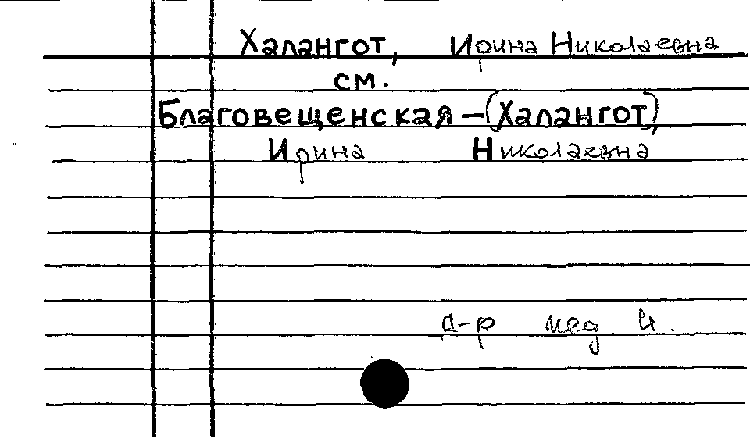 Халангот, Ирина Николаевна
см.
Благовещенская-(Халангот),
Ирина Николаевна
д-р мед н.